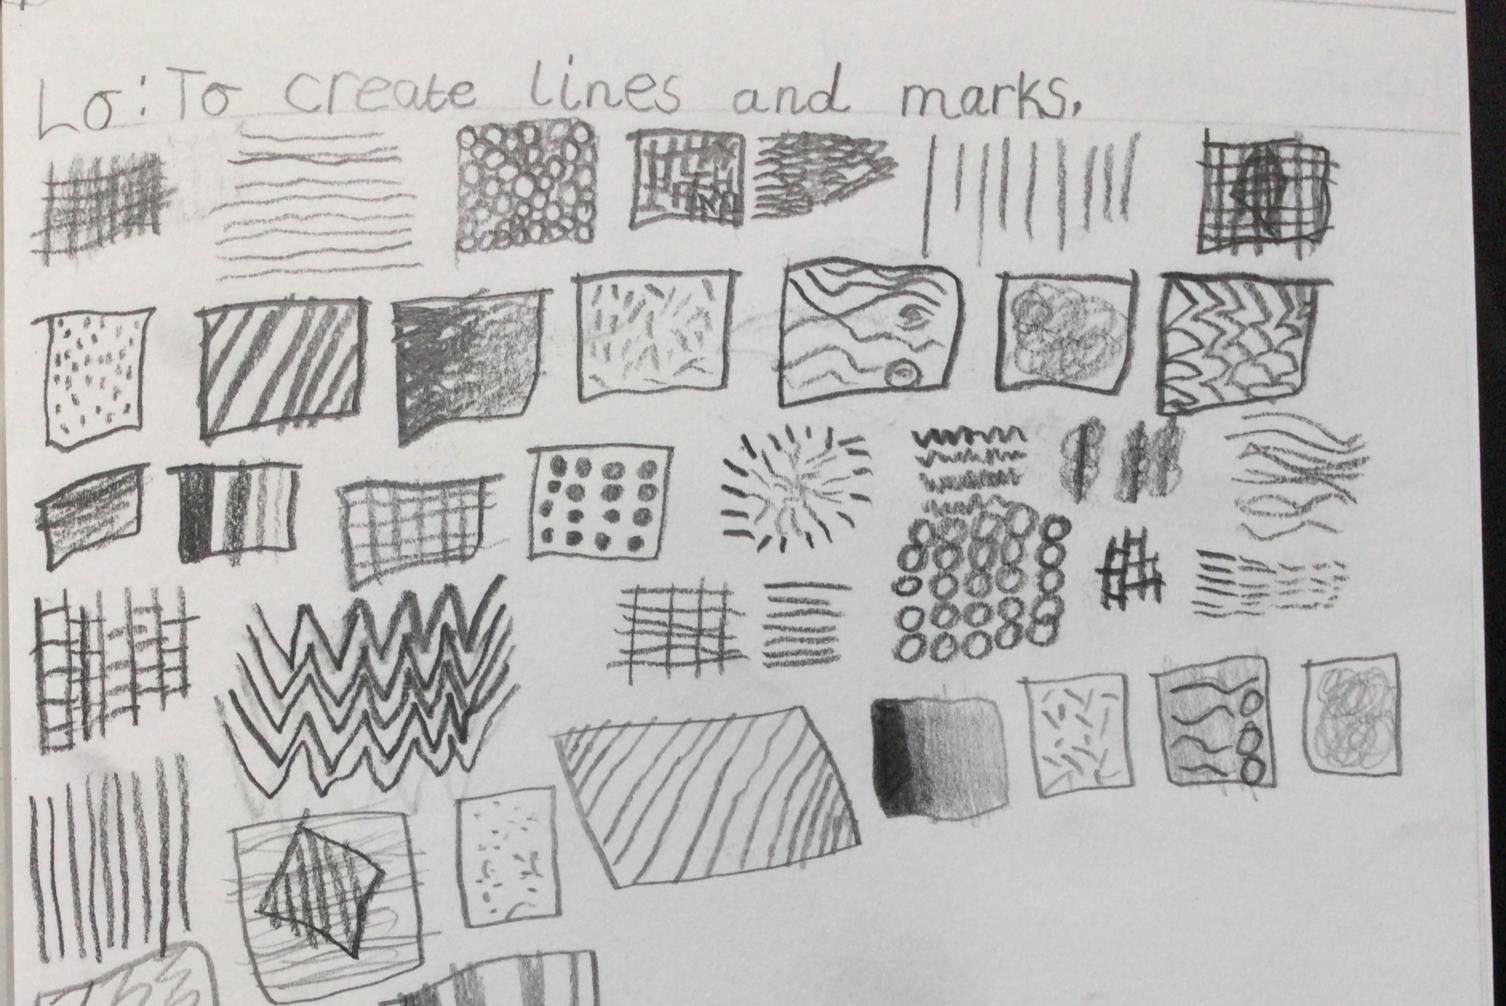 Lo: To create lines and marks.